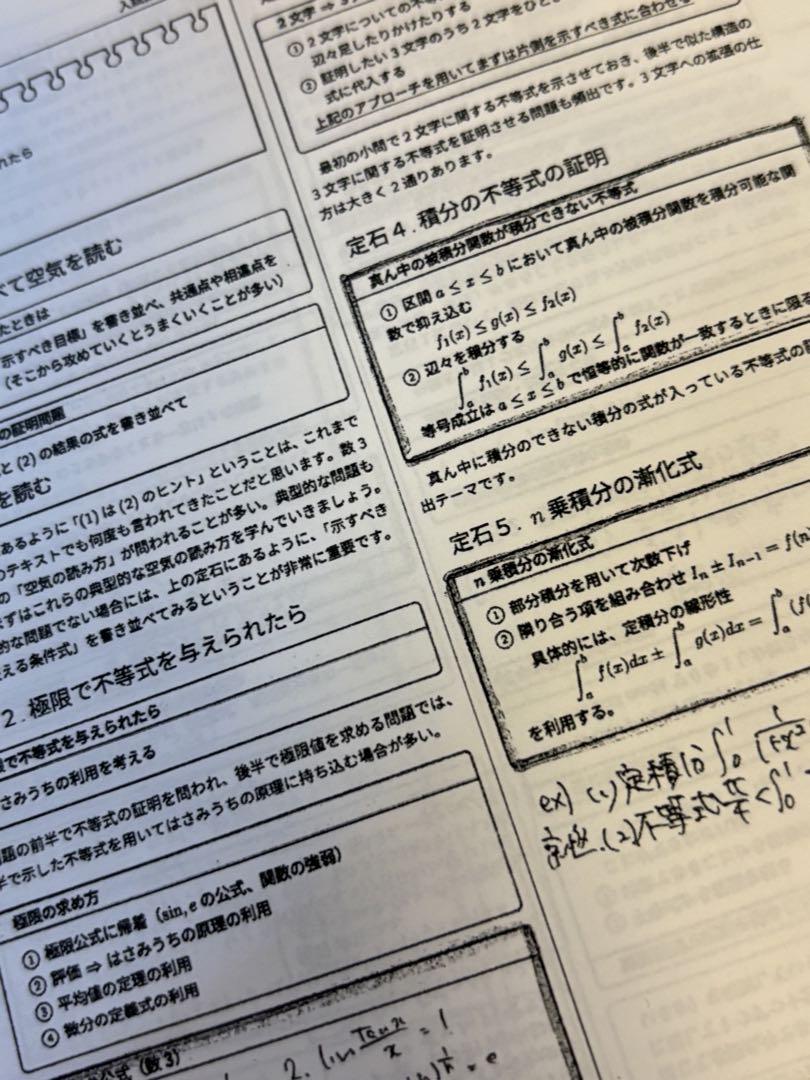 れたら
べて空気を読む
たときは
示すべき目標」を書き並べ、共通点や相違点を
(そこから攻めていくとうまくいくことが多い)
の証明問題
と (2) の結果の式を書き並べて
を読む
あるように「(1) は (2) のヒント」ということは、これまで
のテキストでも何度も言われてきたことだと思います。数 3
の「空気の読み方」が問われることが多い。典型的な問題も
ずはこれらの典型的な空気の読み方を学んでいきましょう。
的な問題でない場合には、上の定石にあるように、「示すべき
える条件式」を書き並べてみるということが非常に重要です。
2. 極限で不等式を与えられたら
限で不等式を与えられたら
はさみうちの利用を考える
問題の前半で不等式の証明を問われ、後半で極限値を求める問題では、
半で示した不等式を用いてはさみうちの原理に持ち込む場合が多い。
極限の求め方
① 極限公式に帰着 (sin, e の公式、関数の強弱)
② 評価 ⇒ はさみうちの原理の利用
③ 平均値の定理の利用
④ 微分の定義式の利用
公式 (数 3)
2. lim tan x / x = 1
= e
① 2 文字についての不等
辺々足したりかけたりする
② 証明したい 3 文字のうち 2 文字をひと
式に代入する
上記のアプローチを用いてまずは片側を示すべき式に合わせる
最初の小問で 2 文字に関する不等式を示させておき、後半で似た構造の
3 文字に関する不等式を証明させる問題も頻出です。3 文字への拡張の仕
方は大きく 2 通りあります。
定石 4. 積分の不等式の証明
真ん中の被積分関数が積分できない不等式
① 区間 a ≤ x ≤ b において真ん中の被積分関数を積分可能な関
数で抑え込む
f₁(x) ≤ g(x) ≤ f₂(x)
② 辺々を積分する
∫ₐᵇ f₁(x) ≤ ∫ₐᵇ g(x) ≤ ∫ₐᵇ f₂(x)
等号成立は a ≤ x ≤ b で恒等的に関数が一致するときに限る
真ん中に積分のできない積分の式が入っている不等式の
出テーマです。
定石 5. n 乗積分の漸化式
n 乗積分の漸化式
① 部分積分を用いて次数下げ
② 隣り合う項を組み合わせ Iₙ ± Iₙ₋₁ = f(n)
具体的には、定積分の線形性
∫ₐᵇ f(x)dx ± ∫ₐᵇ g(x)dx = ∫ₐᵇ (f(
を利用する。
ex) (1) 定積分 ∫₀¹
(2) 不等式 π/4 < ∫₀¹